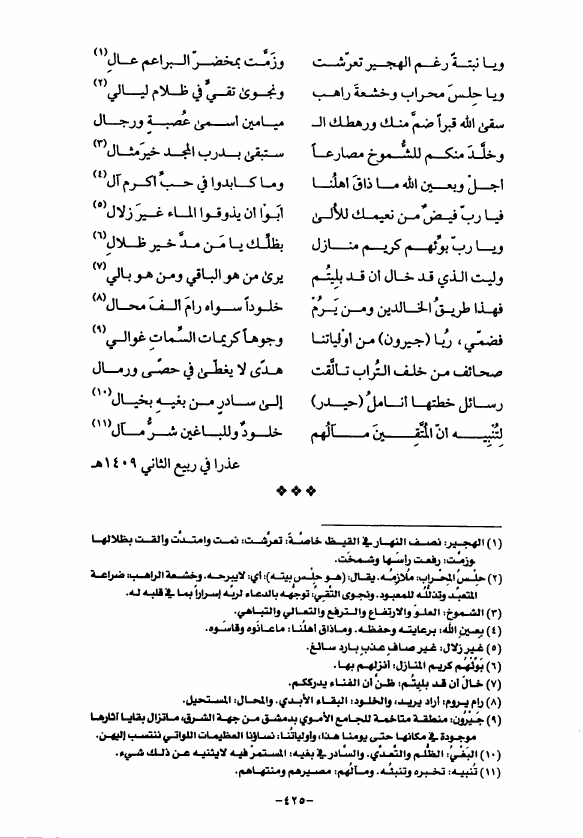 ويا نبتةً رغم الهجير تعرّشت وزمَّت بمخضرّ البراعم عالِ(١)
ويا حِلسَ محراب وخشعةَ راهب ونجوىٰ تقيٍّ في ظلام ليالي(٢)
سقىٰ الله قبراً ضمَّ منك ورهطك الـ ميامين أسمىٰ عُصبةٍ ورجال
وخلَّدَ منكم للشُّموخ مصارعاً ستبقىٰ بدرب المجد خيرَ مثال(٣)
أجلْ وبعين الله ما ذاقَ أهلُنا وما كابدوا في حبِّ أكرم آل(٤)
فيا ربّ فيضٌ من نعيمك للأُلىٰ أبَوْا أن يذوقوا الماء غيرَ زلال(٥)
ويا ربّ بوِّئهم كريم منازل بظلِّك يا مَن مدَّ خير ظلال(٦)
وليت الذي قد خال أن قد بليتُم يرىٰ من هو الباقي ومن هو بالي(٧)
فهذا طريقُ الخالدين ومن يَرُمْ خلوداً سواه رامَ ألفَ محال(٨)
فضمّي، رُبا (جيرون) من أوْلياتنا وجوهاً كريمات السِّماتِ غوالي(٩)
صحائف من خلف التُراب تألَّقت هدىً لا يغطىٰ في حصىً ورمال
رسائل خطتها أناملُ (حيدر) إلىٰ سادرٍ من بغيه بخيال(١٠)
لتُنبِيه أنّ المتَّقينَ مآلهم خلودٌ وللباغين شرُّ مآل(١١)
عذرا في ربيع الثاني ١٤٠٩هـ
(١) الهجير: نصف النهار في القيظ خاصّة؛ تعرّشت: نمت وامتدّت وألقت بظلالها
وزمّت: رفعت رأسَها وشمخت.
(٢) حِلْسُ المِحْراب: مُلازمُه. يقال: (هو حِلْس بيته): أي: لايبرحه. وخشعة الراهب: ضراعة
المتعبّد وتذلُّله للمعبود. ونجوى التّقيّ: توجهُه بالدعاء لربّه إسراراً بما في قلبه له.
(٣) الشموخ: العلوّ والارتفاع والترفع والتعالي والتباهي.
(٤) بعين الله: برعايته وحفظه. وماذاق أهلُنا: ماعانَوه وقاسَوه.
(٥) غير زلال: غير صافٍ عذب بارد سائغ.
(٦) بَوِّئْهم كريم المنازل: أنزلهم بها.
(٧) خالَ أن قد بليتُم: ظنّ أن الفناء يدرككم.
(٨) رام يروم: أراد يريد، والخلود: البقاء الأبدي. والمحال: المستحيل.
(٩) جَيْرُون: منطقة متاخمة للجامع الأموي بدمشق من جهة الشرق، ماتزال بقايا آثارها
موجودة في مكانها حتى يومنا هذا، وأولياتُنا: نساؤنا العظيمات اللواتي ننتسب إليهن.
(١٠) البَغْيُ: الظُّلم والتّعدّي. والسَّادر في بغيه: المستمرّ فيه لايثنيه عن ذلك شيء.
(١١) تُنبيه: تخبره وتنبئه. ومآلهم: مصيرهم ومنتهاهم.
-٤٢٥-